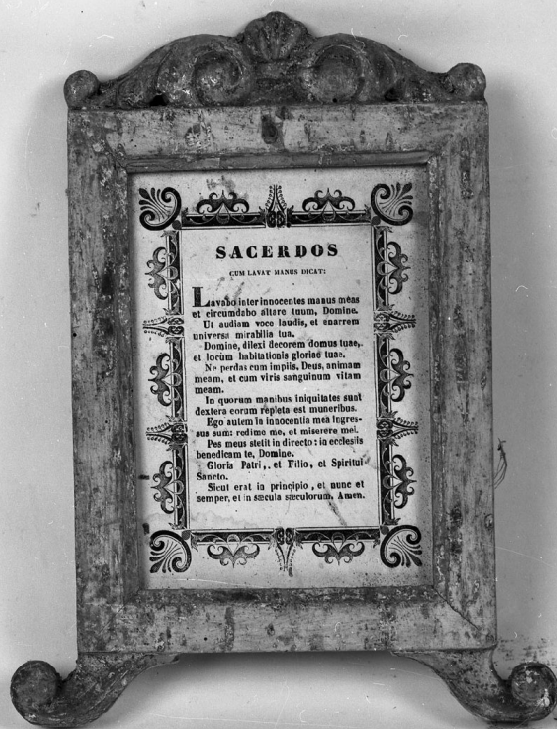 SACERDOS
CUM LAVAT MANUS DICAT:
Lavabo inter innocentes manus meas
et circumdabo altare tuum, Domine.
Ut audiam voce laudis, et enarrem
universa mirabilia tua.
Domine, dilexi decorem domus tuae,
et locum habitationis gloriae tuae.
Ne perdas cum impiis, Deus, animam
meam, et cum viris sanguinum vitam
meam.
In quorum manibus iniquitates sunt
dextera eorum repleta est muneribus.
Ego autem in innocentia mea ingres-
sus sum: redime me, et miserere mei.
Pes meus stetit in directo: in ecclesiis
benedicam te, Domine.
Gloria Patri, et Filio, et Spiritui
Sancto.
Sicut erat in principio, et nunc et
semper, et in sæcula sæculorum. Amen.